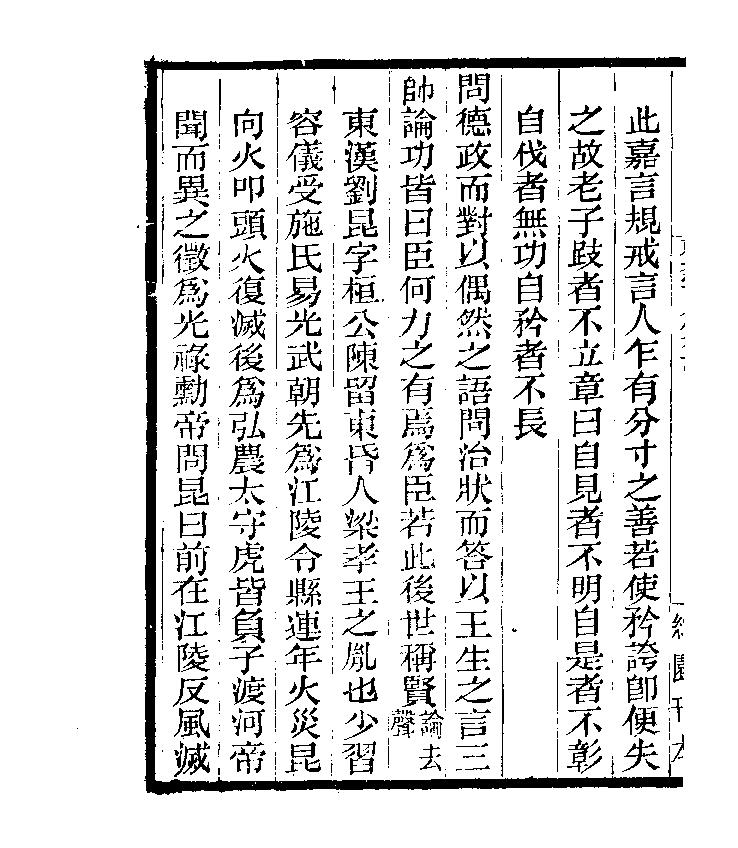 此嘉言規戒言人乍有分寸之善若使矜誇卽便失
之故老子跂者不立章曰自見者不明自是者不彰
自伐者無功自矜者不長
問德政而對以偶然之語問治狀而答以王生之言三
帥論功皆曰臣何力之有焉爲臣若此後世稱賢論去聲
東漢劉昆字桓公陳留東昏人梁孝王之胤也少習
容儀受施氏易光武朝先爲江陵令縣連年火災昆
向火叩頭火復滅後爲弘農太守虎皆負子渡河帝
聞而異之徵爲光祿勳帝問昆曰前在江陵反風滅